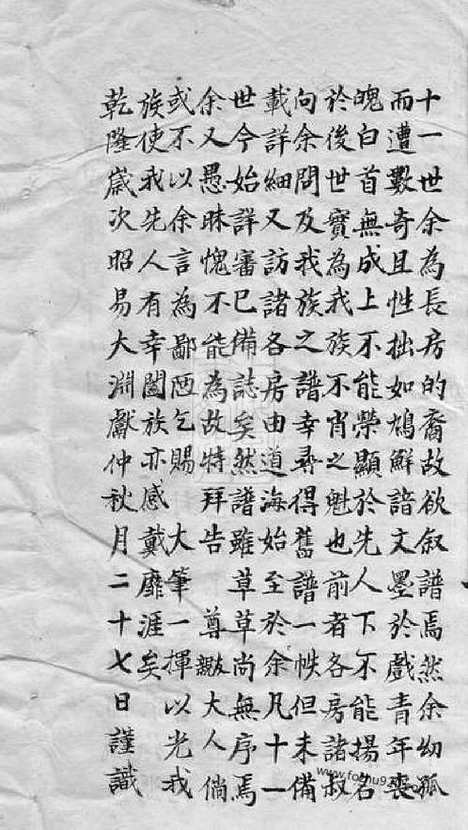 十一世余為長房的裔故欲叙譜焉然余幼孤
而遭數奇且性拙如鳩鮮諳文墨於戲青年喪
愧白首無成上不能榮顯於先人下不能揚名
於後世寶為我族不肖之魁也前者各房諸叔
向余問及我族之譜幸尋得舊譜一帙但未備
載詳細又訪諸各房由道海始至於余凡十一
世今始詳審已備誌矣然譜雖草草尚無序焉
余又愚昧愧不能為故特拜告 尊 大人倘
或不以余言為鄙陋乞賜 大筆一揮以光我
族使我先人有幸闔族亦感戴靡涯矣
乾隆歲次昭易大淵獻仲秋月二十七日謹識